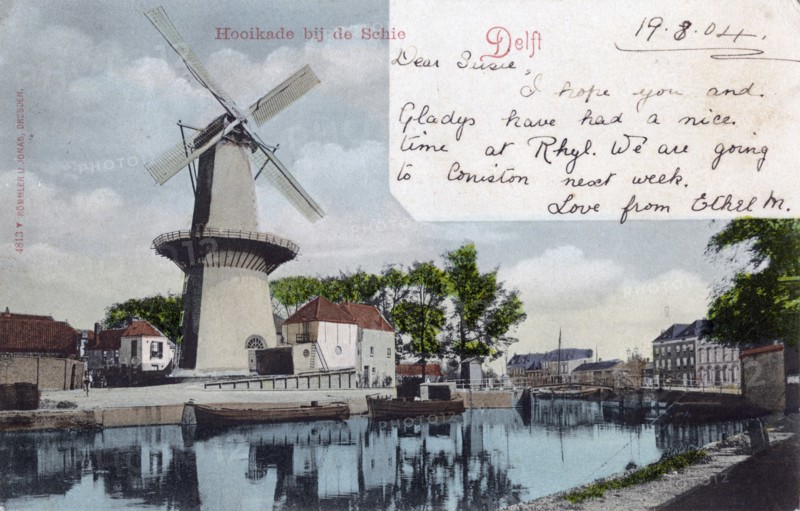 Hooikade bij de Schie
Delft
19.8.04.
Dear Susie,
I hope you and
Gladys have had a nice
time at Rhyl. We are going
to Coniston next week.
Love from Ethel M.
4813 RÖMMLER U. JONAS, DRESDEN.